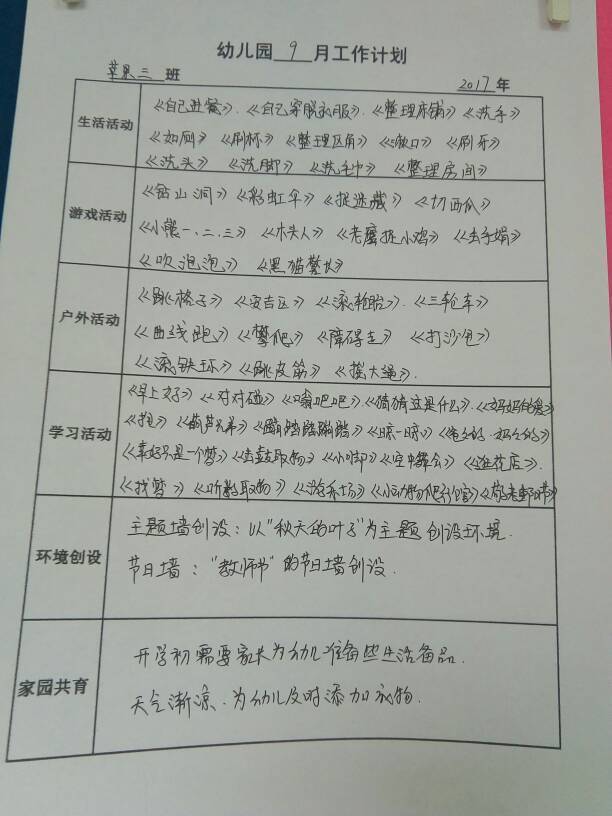 幼儿园 9 月工作计划
苹果三 班 2017 年
生活活动
《自己进餐》.《自己穿脱衣服》.《整理床铺》《洗手》
《如厕》《刷杯》《整理区角》《漱口》《刷牙》
《洗头》《洗脚》《洗毛巾》《整理房间》
游戏活动
《钻山洞》《彩虹伞》《捉迷藏》《切西瓜》
《小熊一、二、三》《木头人》《老鹰捉小鸡》《丢手娟》
《吹泡泡》《黑猫警长》
户外活动
《跳格子》《安吉区》《滚轮胎》.《三轮车》
《曲线跑》《攀爬》《障碍走》《打沙包》
《滚铁环》《跳皮筋》《摇大绳》.
学习活动
《早上好》《对对碰》《嗡吧吧》.《猜猜这是什么》.《妈妈的爱》
《抢》《葫芦兄弟》《晾一晾》《爸爸的、妈妈的》
《幸好只是一个梦》《击鼓取物》《小脚》《空中舞会》《逛花店》.
《找梦》《听数取物》《游乐场》《小动物爬行宫》
环境创设
主题墙创设：以“秋天的叶子”为主题创设环境.
节日墙：“教师节”的节日墙创设.
家园共育
开学初需要家长为幼儿准备些生活备品.
天气渐凉、为幼儿及时添加衣物.